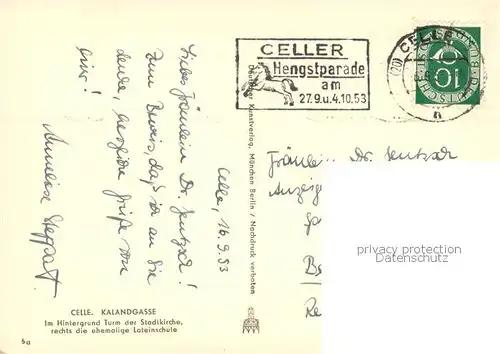 Celle, 16.9.53
Liebes Fräulein Dr. Jentzsch!
Zum Beweis, daß ich an Sie
denke, herzliche Grüße von
hier!
Annelise
CELLER
Hengstparade
am
27.9.u.4.10.53
(20) CELLE
DEUTSCHE BUNDESPOST
10
Fräulein Dr. Jentzsch
privacy protection
www.AnsichtskartenHandel.de
Deutscher Kunstverlag, München Berlin / Nachdruck verboten
CELLE. KALANDGASSE
Im Hintergrund Turm der Stadtkirche,
rechts die ehemalige Lateinschule
6a